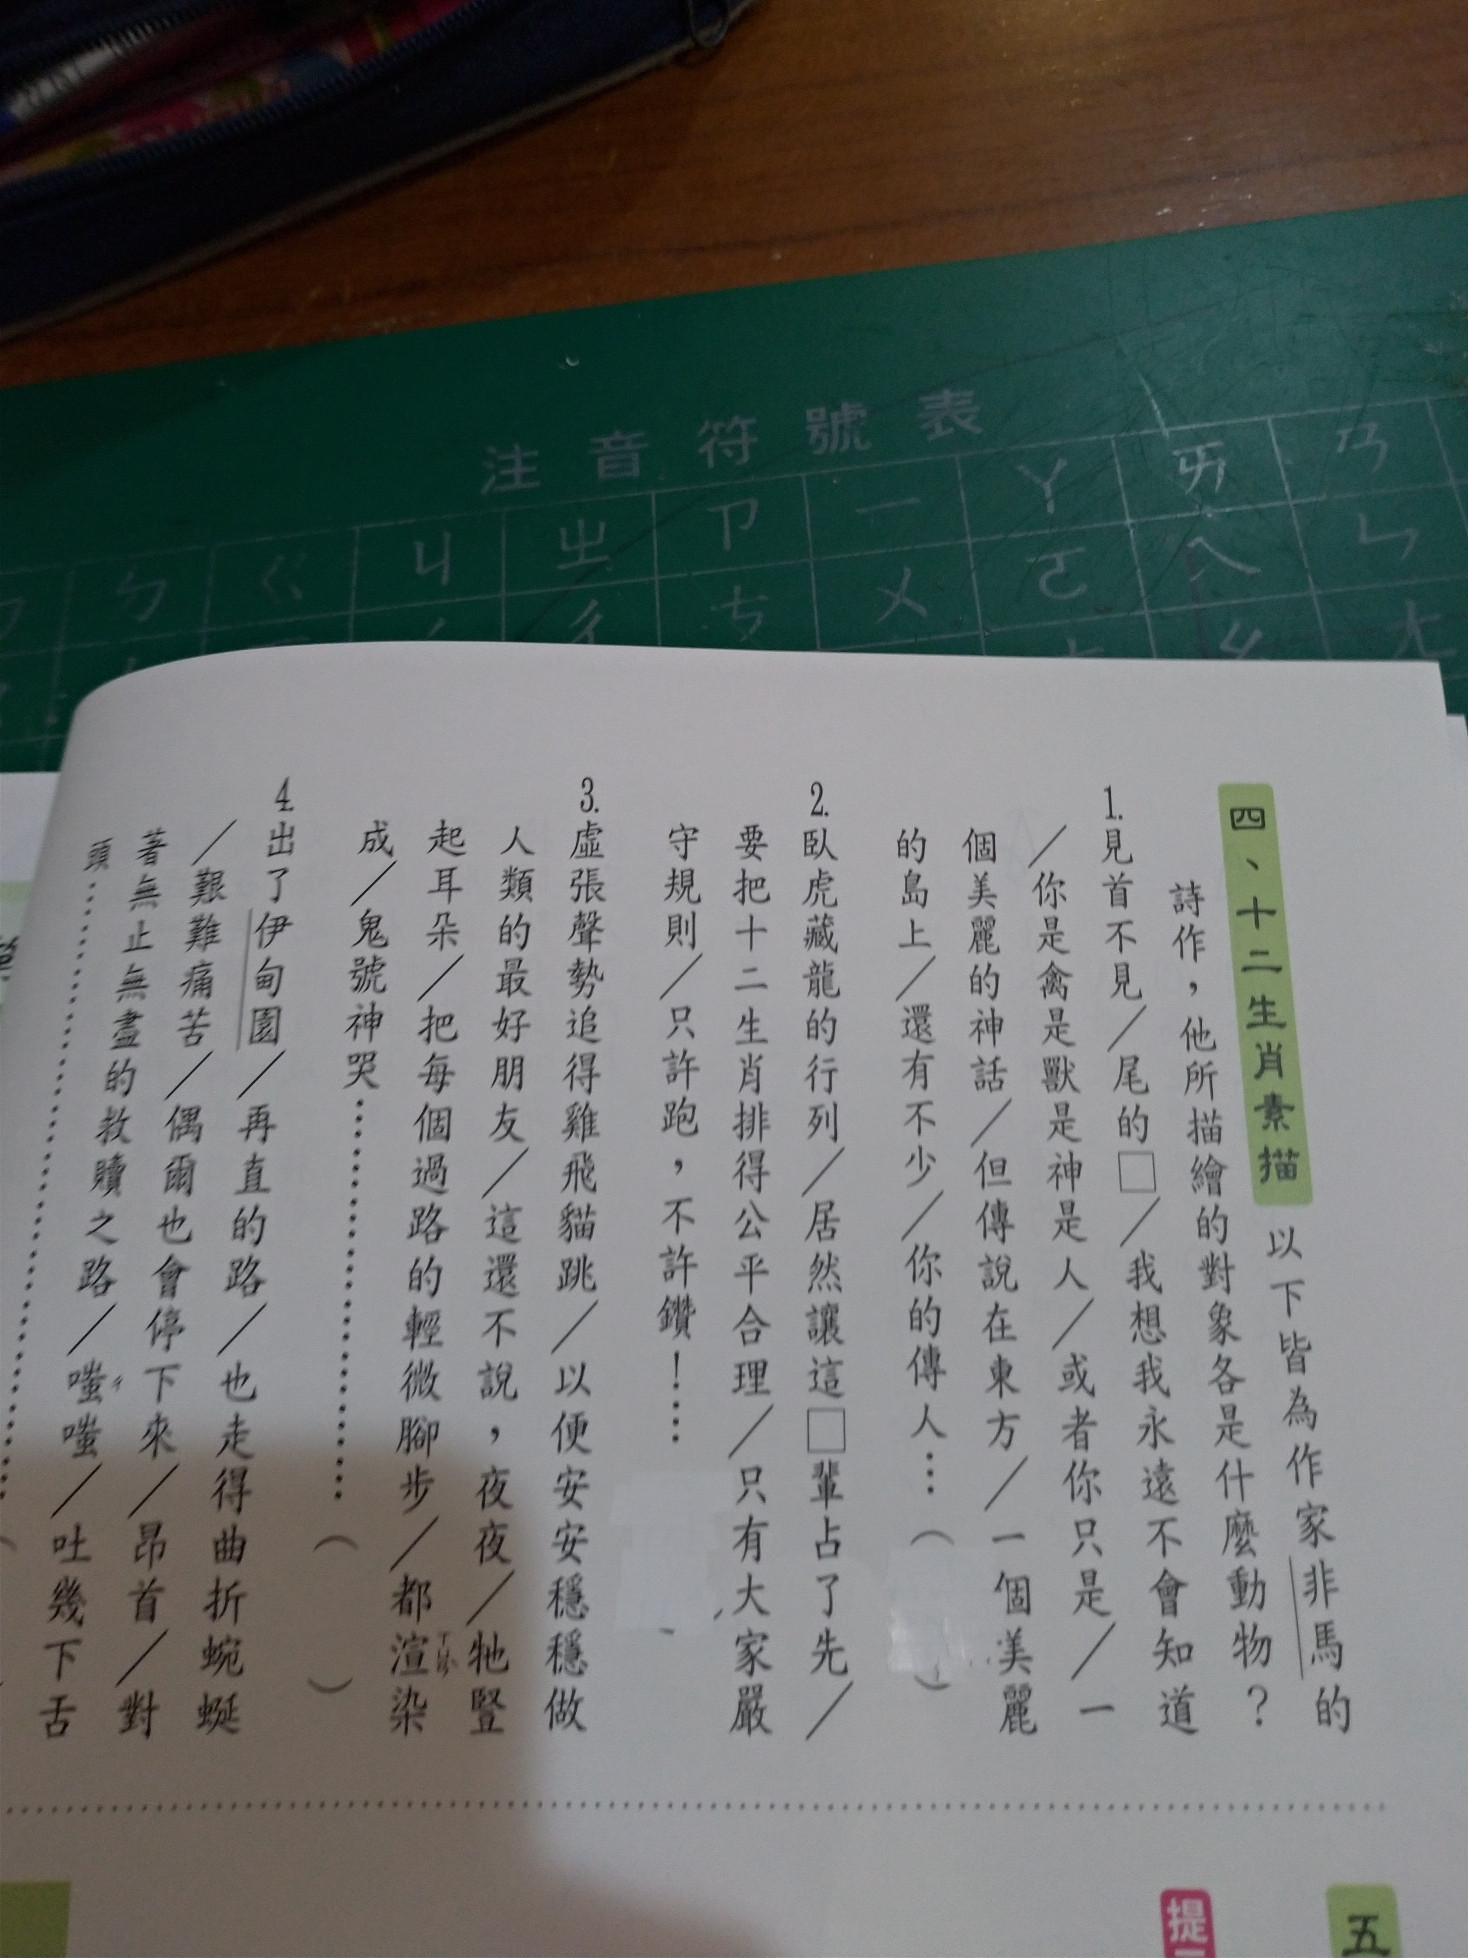 注音符號表
ㄅ ㄍ ㄐ ㄓ ㄗ ㄧ ㄚ ㄞ ㄢ
ㄔ ㄘ ㄨ ㄛ ㄟ ㄣ
ㄠ ㄤ
四、十二生肖素描 以下皆為作家非馬的
詩作，他所描繪的對象各是什麼動物？
1.見首不見／尾的□／我想我永遠不會知道
／你是禽是獸是神是人／或者你只是／一
個美麗的神話／但傳說在東方／一個美麗
的島上／還有不少／你的傳人…（
）
2.臥虎藏龍的行列／居然讓這□輩占了先／
要把十二生肖排得公平合理／只有大家嚴
守規則／只許跑，不許鑽！…
3.虛張聲勢追得雞飛貓跳／以便安安穩穩做
人類的最好朋友／這還不說，夜夜／牠豎
起耳朵／把每個過路的輕微腳步／都渲染
成／鬼號神哭……………………（ ）
4.出了伊甸園／再直的路／也走得曲折蜿蜒
／艱難痛苦／偶爾也會停下來／昂首／對
著無止無盡的救贖之路／嗤嗤／吐幾下舌
頭……………………
提
五